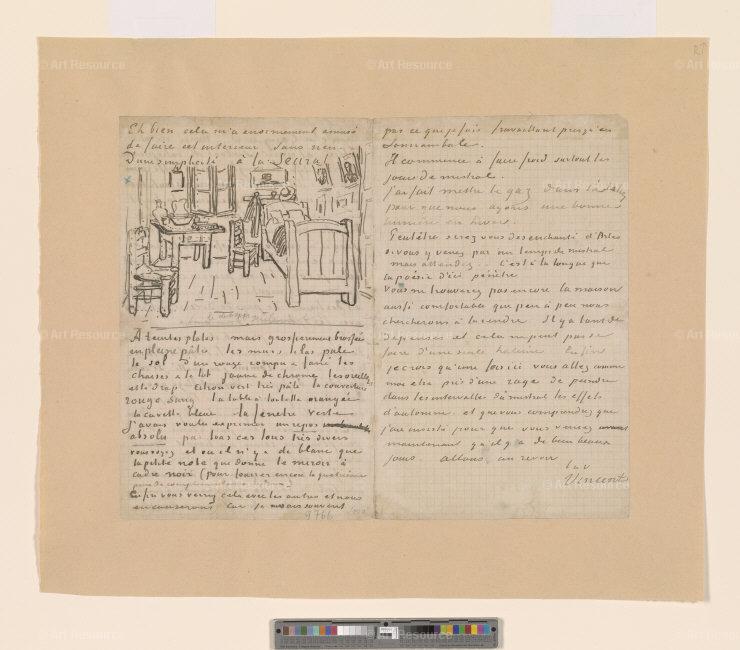 Eh bien cela m'a enormement amusé
de faire cet interieur sans rien.
D'une simplicité à la Seurat
A teintes plates mais grossierement brossées
en pleine pâte les murs lilas pale
le sol d'un rouge rompu & fané les
chaises & le lit jaune de chrome les oreillers
et le drap citron vert très pâle la couverture
rouge sang la table à toilette orangée
la cuvette bleue la fenetre verte
J'avais voulu exprimer un repos
absolu par tous ces tons très divers
vous voyez et où il n'y a de blanc que
la petite note que donne le miroir à
cadre noir (pour fourrer encore la quatrieme
paire de complementaires dedans.)
Enfin vous verrez cela avec les autres et nous
en causerons car je ne sais souvent
9766
pas ce que je fais travaillant presqu'en
somnambule.
Il commence à faire froid surtout les
jours de mistral.
J'ai fait mettre le gaz dans
pour que nous ayons une bonne
lumière en hiver.
Peutêtre serez vous desenchanté d'Arles
si vous y venez par un temps de mistral
mais attendez . C'est à la longue que
la poësie d'ici pénètre
Vous ne trouverez pas encore la maison
aussi comfortable que peu à peu nous
chercherons à la rendre. Il y a tant de
depenses et cela ne peut pas se
faire d'une seule haleine. Enfin
je crois qu'une fois ici vous allez comme
moi etre pris d'une rage de peindre
dans les intervalles du mistral les effets
d'automne. et que vous comprendrez que
j'ai insisté pour que vous veniez
maintenant qu'il y a de bien beaux
jours allons, au revoir
t. à v
Vincent
© Art Resource